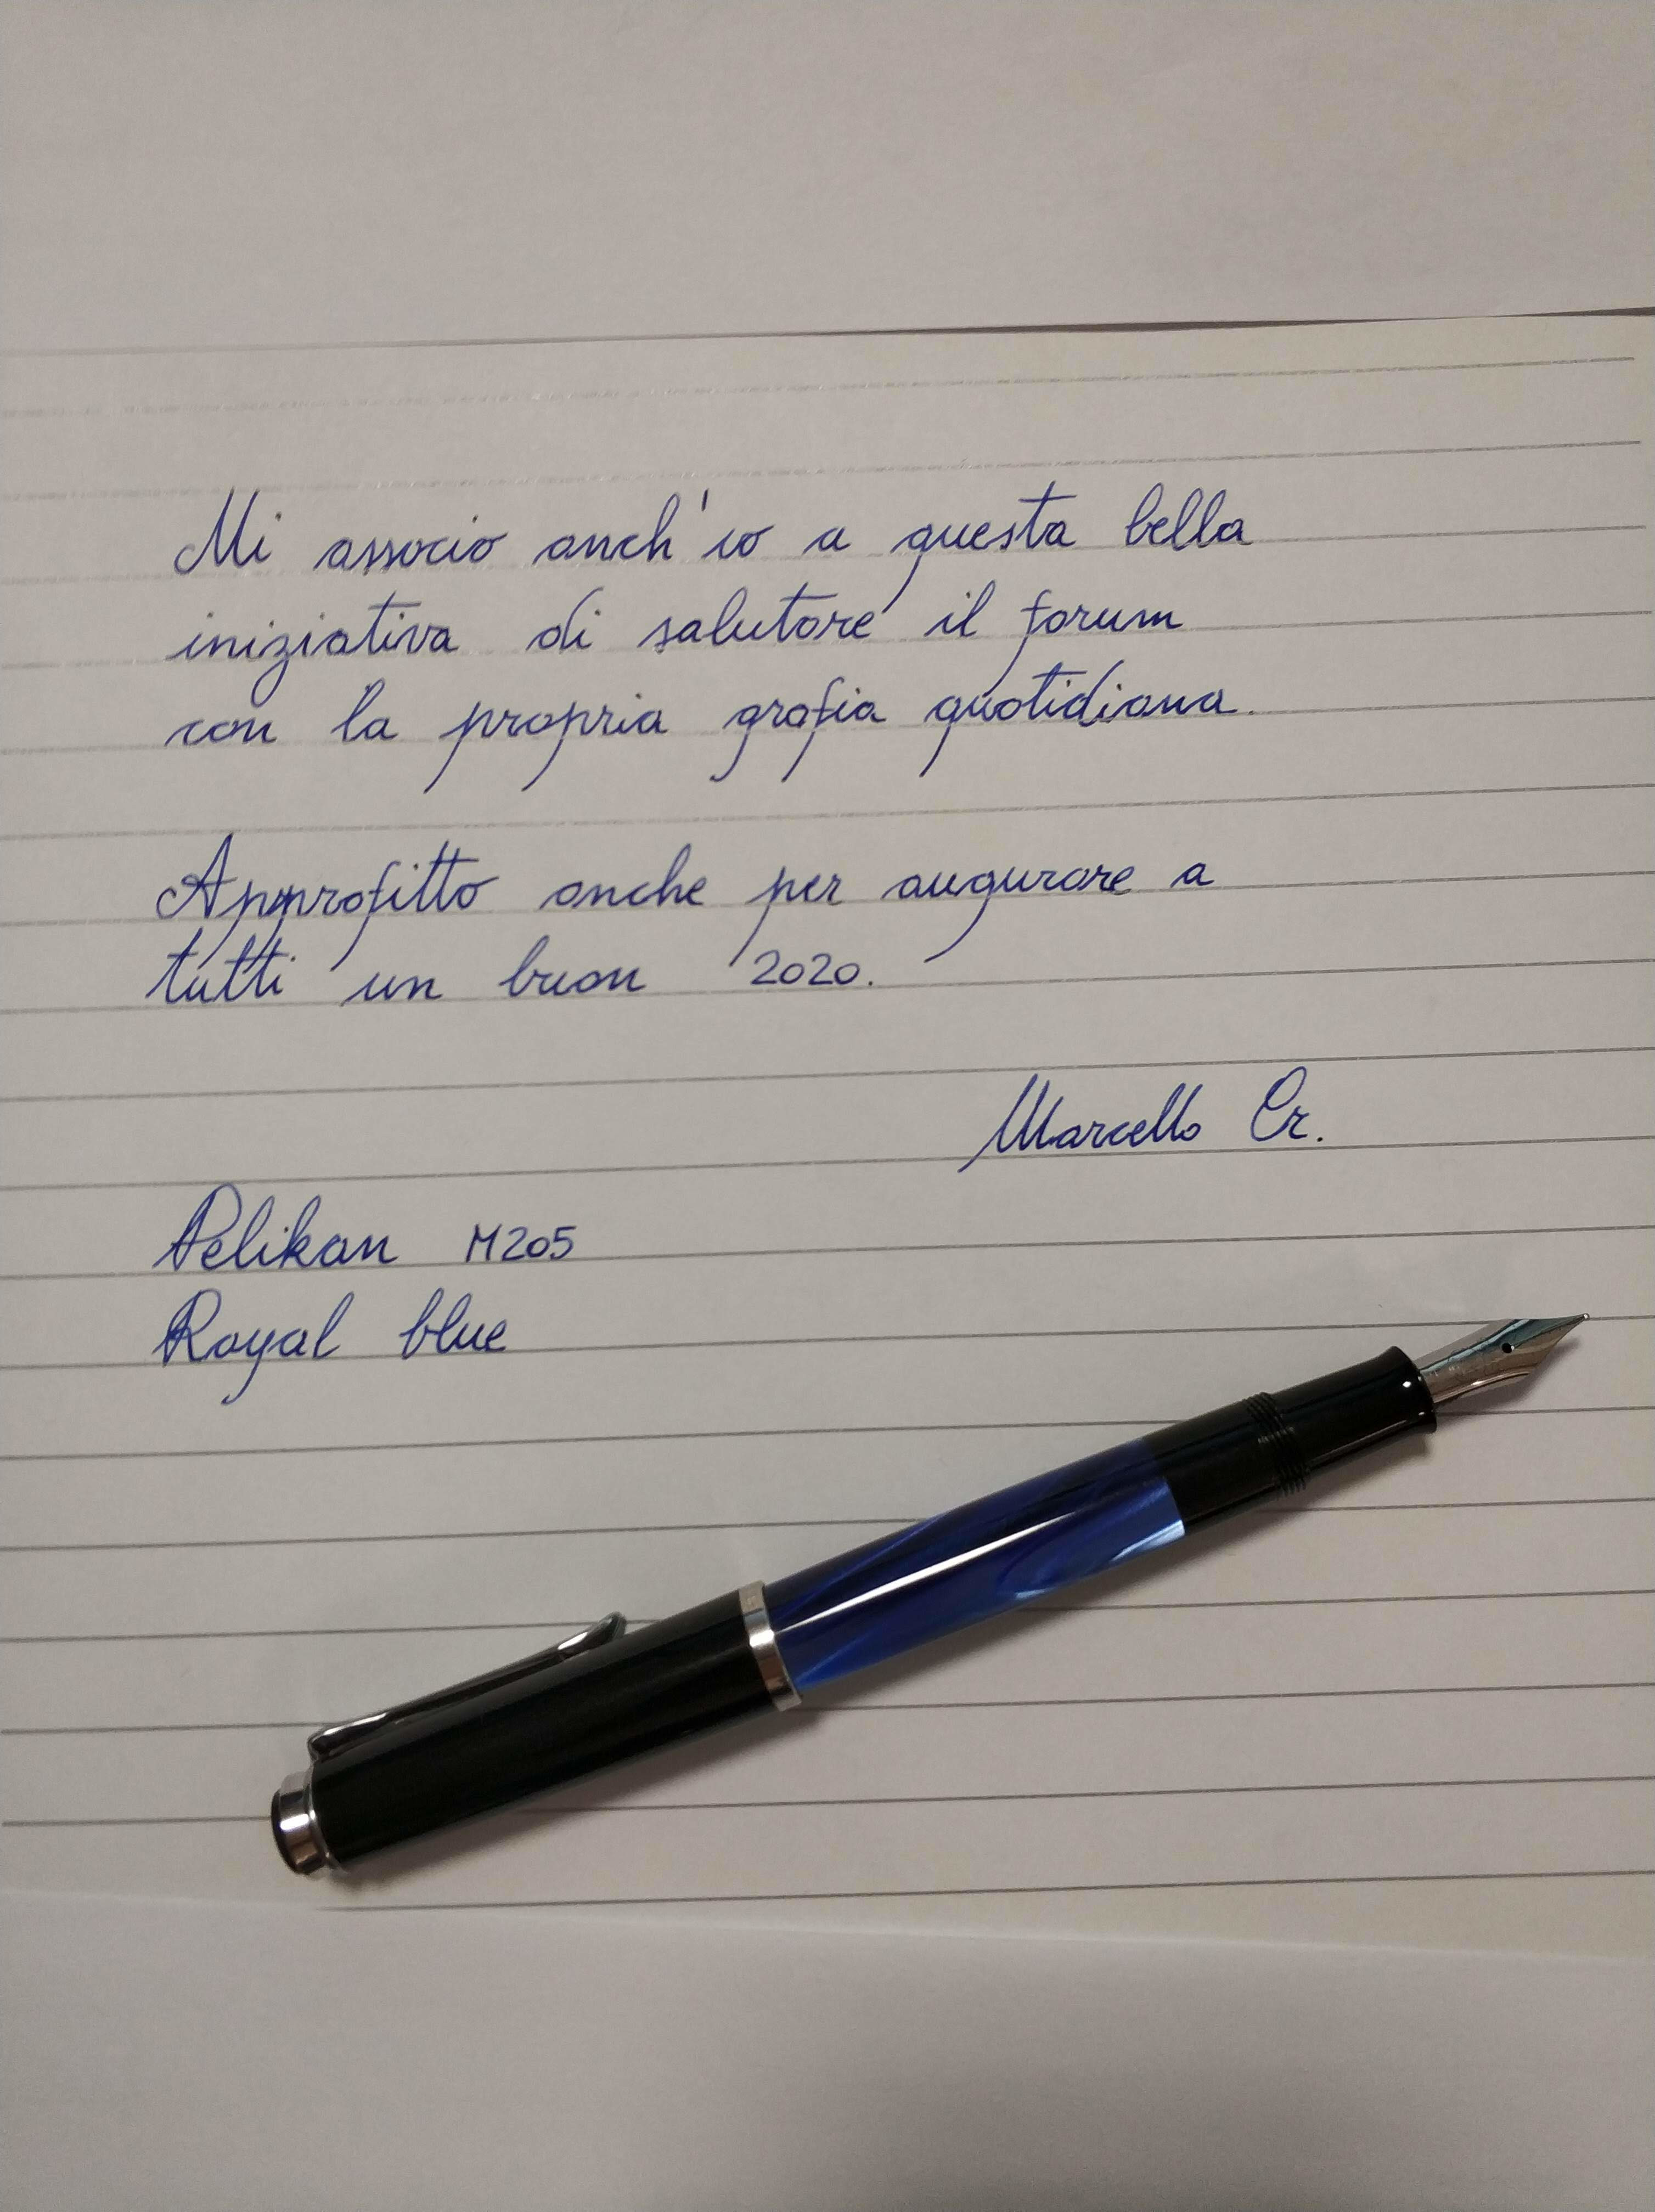 Mi associo anch'io a questa bella
iniziativa di salutare il forum
con la propria grafia quotidiana.
Approfitto anche per augurare a
tutti un buon 2020.
Marcello Cr.
Pelikan M205
Royal blue